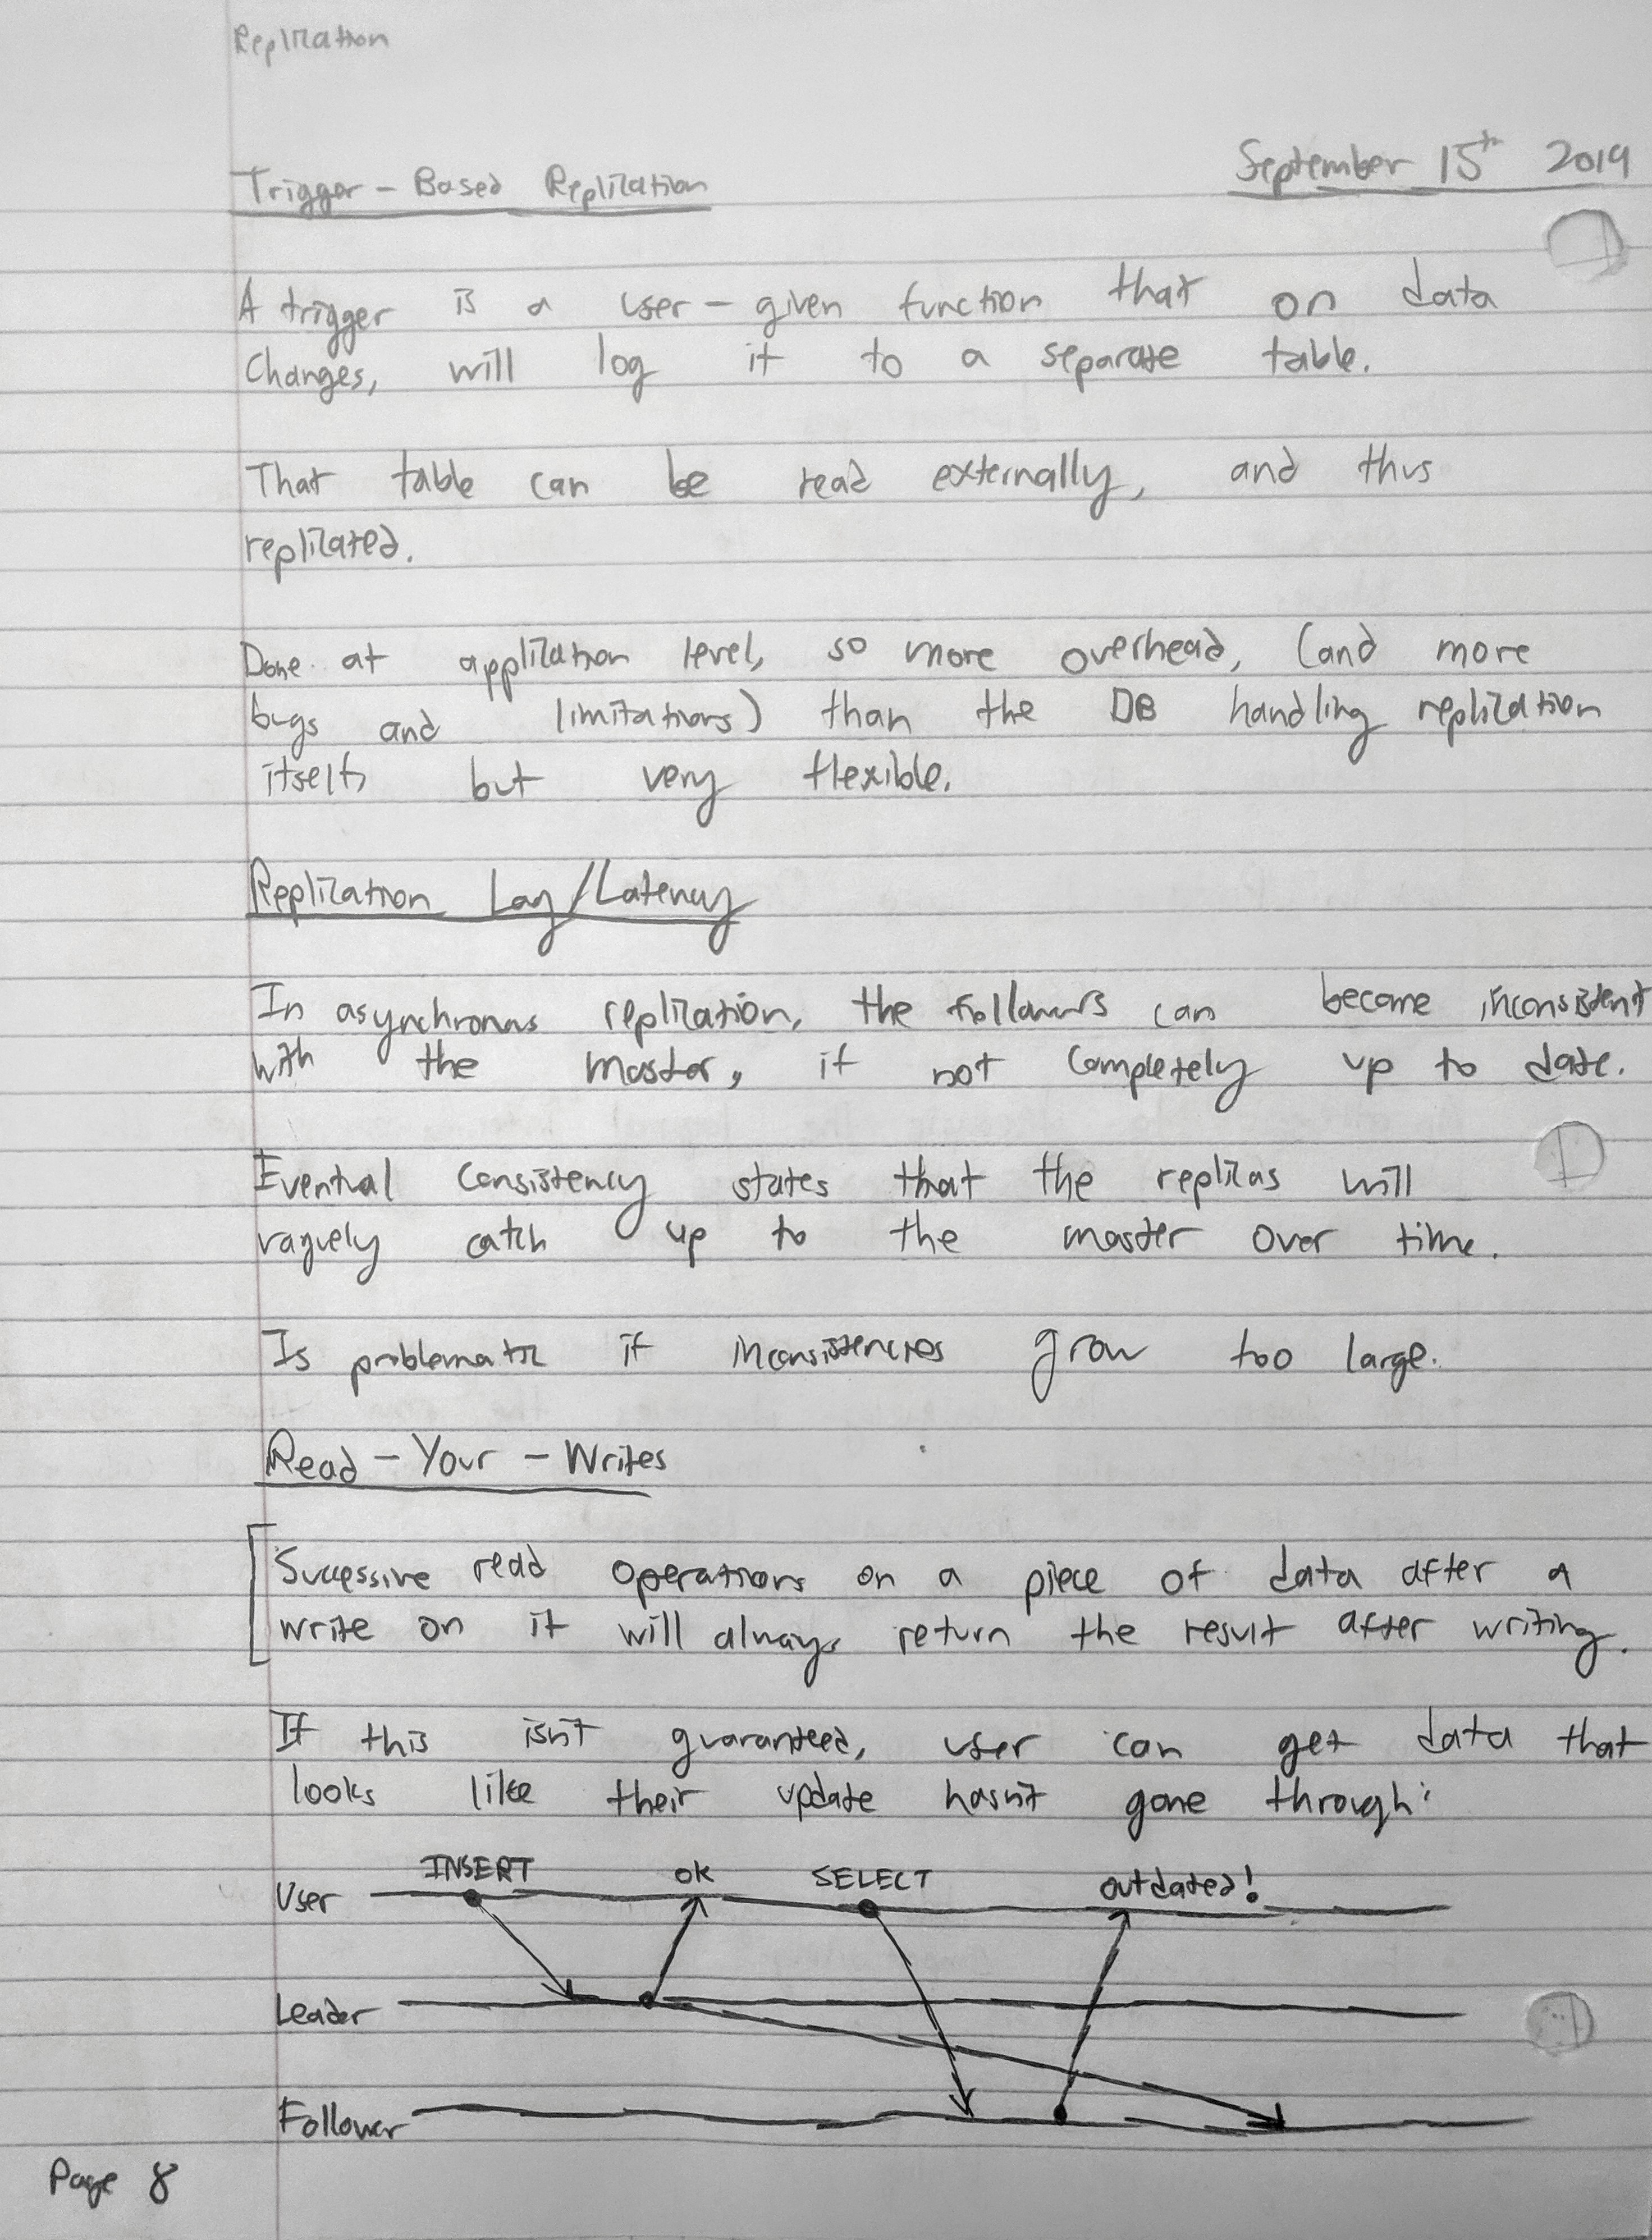 Replication
Trigger-Based Replication
September 15th 2019
A trigger is a user-given function that on data
changes, will log it to a separate table.
That table can be read externally, and thus
replicated.
Done at application level, so more overhead, (and more
bugs and limitations) than the DB handling replication
itself, but very flexible.
Replication Lag/Latency
In asynchronous replication, the followers can become inconsistent
with the master, if not completely up to date.
Eventual consistency states that the replicas will
vaguely catch up to the master over time.
Is problematic if inconsistencies grow too large.
Read-Your-Writes
Successive read operations on a piece of data after a
write on it will always return the result after writing.
If this isn't guaranteed, user can get data that
looks like their update hasn't gone through:
INSERT ok SELECT outdated!
User
Leader
Follower
Page 8